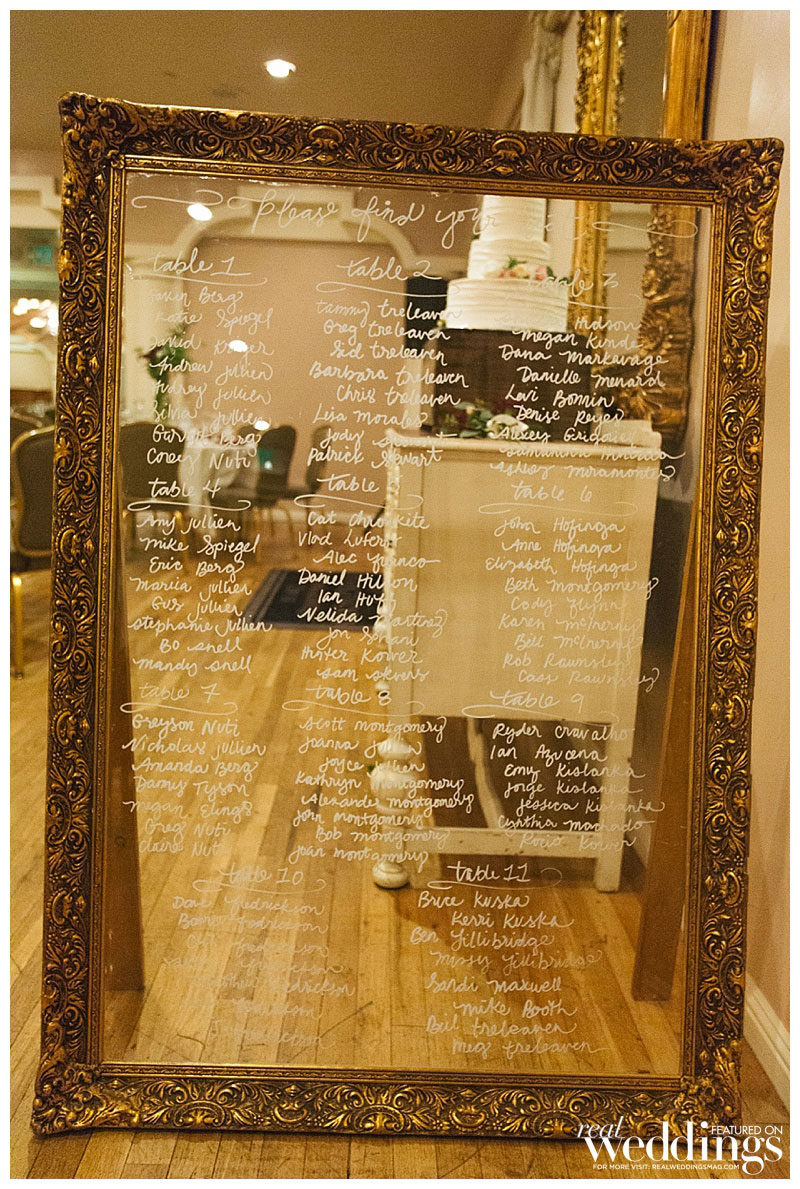 Please find your
table 1
Berg
Katie Spiegel
David
Andrew Jullien
Audrey Jullien
Silvia Jullien
Garrett Berg
Corey Nuti
table 2
tammy treleaven
Greg treleaven
Sid treleaven
Barbara treleaven
Chris treleaven
Lisa Morales
Jody Stewart
Patrick Stewart
table 3
Hudson
Megan Kunde
Dana Markavage
Danielle Menard
Levi Bomin
Denise Reyes
Alexey Grigoriev
Samantha Miranda
Ashley Miramontes
table 4
Amy Jullien
Mike Spiegel
Eric Berg
Maria Jullien
Gus Jullien
Stephanie Jullien
Bo Snell
Mandy Snell
table
Cat Chronkite
Vlad
Alec
Daniel Hilson
Ian
Nelida Martinez
Jon
Hunter Kower
Sam
table 6
John Hofinga
Anne Hofinga
Elizabeth Hofinga
Beth Montgomery
Cody Flynn
Karen McInerny
Bill McInerny
Rob Rawnsley
Cass Rawnsley
table 7
Greyson Nuti
Nicholas Jullien
Amanda Berg
Danny Tyson
Megan Elings
Greg Nuti
Claire Nuti
table 8
Scott Montgomery
Joanna Jullien
Joyce Jullien
Kathryn Montgomery
Alexander Montgomery
John Montgomery
Bob Montgomery
Joan Montgomery
table 9
Ryder Cravalho
Ian Azucena
Emy Kislanka
Jorge Kislanka
Jessica Kislanka
Cynthia Machado
Rocio Kower
table 10
Dave Fredrickson
Fredrickson
Fredrickson
Fredrickson
Fredrickson
table 11
Bruce Kuska
Kerri Kuska
Ben Jillibridge
Missy Jillibridge
Sandi Maxwell
Mike Booth
Bill treleaven
Meg treleaven
FEATURED ON
real WEDDINGS
FOR MORE VISIT: REALWEDDINGSMAG.COM